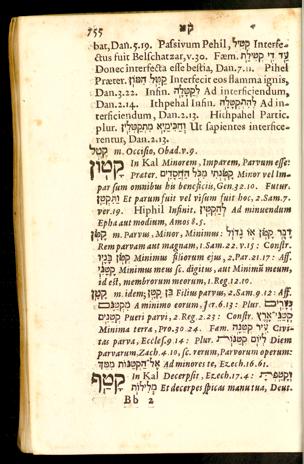 755
bat, Dan. 5.19. Passivum Pehil, קְטִיל Interfe-
ctus fuit Belschatzar, v. 30. Fœm. עַד דִּי קְטִילַת
Donec interfecta esset bestia, Dan. 7. 11. Pihel
Præter. קַטִּל הִמּוֹן Interfecit eos flamma ignis,
Dan. 3.22. Infin. לְקַטָּלָה Ad interficiendum,
Dan. 2.14. Ithpehal Infin. לְהִתְקְטָלָה Ad in-
terficiendum, Dan. 2.13. Hithpahel Partic.
plur. וְחַכִּימַיָּא מִתְקַטְּלִין Ut sapientes interfice-
rentur, Dan. 2.13.
קֶטֶל m. Occisio, Obad. v. 9.
קָטֹן In Kal Minorem, Imparem, Parvum esse:
Præter. קָטֹנְתִּי מִכֹּל הַחֲסָדִים Minor vel Im-
par sum omnibus his beneficiis, Gen. 32. 10. Futur.
וַתִּקְטַן Et parum fuit vel visum fuit hoc, 2. Sam. 7.
ver. 19. Hiphil Infinit. לְהַקְטִין Ad minuendum
Epha aut modium, Amos 8.5.
קָטֹן m. Parvus, Minor, Minimus: דָּבָר קָטֹן אוֹ גָדוֹל
Rem parvam aut magnam, 1. Sam. 22. v. 15: Constr.
קְטֹן בָּנָיו Minimus filiorum ejus, 2. Par. 21. 17: Aff.
קָטָנִּי Minimus meus sc. digitus, aut Minimũ meum,
id est, membrorum meorum, 1. Reg. 12. 10.
קָטָן m. idem; בֵּן קָטָן Filius parvus, 2. Sam. 9. 12: Aff.
מִקְּטַנָּם A minimo eorum, Jer. 6. 13: Plur. נְעָרִים
קְטַנִּים Pueri parvi, 2. Reg. 2.23: Constr. קְטַנֵּי־אָרֶץ
Minima terra, Pro. 30. 24. Fœm. עִיר קְטַנָּה Civi-
tas parva, Eccles. 9. 14: Plur. לְיוֹם קְטַנּוֹת Diem
parvarum, Zach. 4. 10, sc. rerum, Parvorum operum:
אֶל־הַקְּטַנּוֹת מִמֵּךְ Ad minores te, Ezech. 16. 61.
קָטַף In Kal Decerpsit, Ezech. 17. 4: וְקָטַפְתָּ
מְלִילֹת Et decerpes spicas manu tua, Deut.
Bb 2